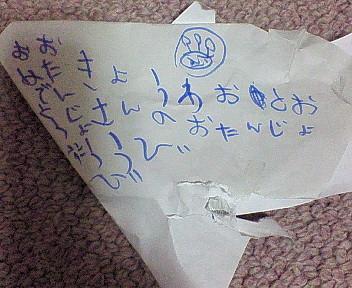 きょうわおとお
さんのおたんじょ
うび
おたんじょうび
おめでとう